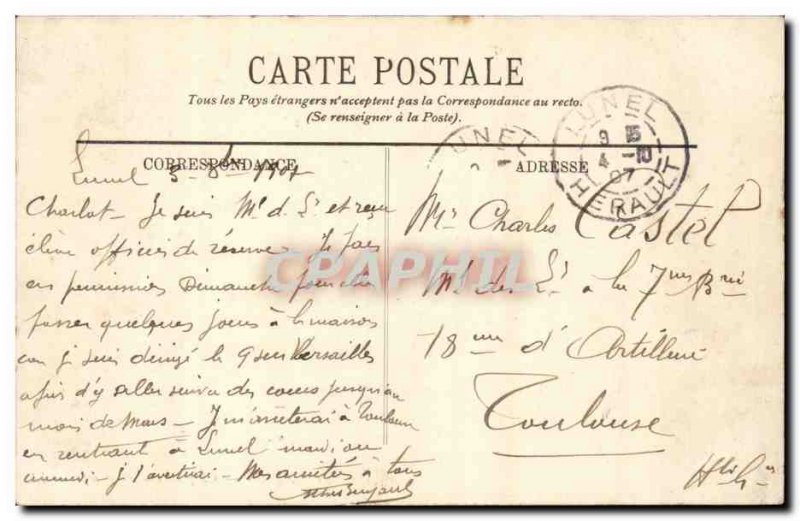 CARTE POSTALE
Tous les Pays étrangers n'acceptent pas la Correspondance au recto.
(Se renseigner à la Poste).
LUNEL
9 15
4 -10
07
HERAULT
UNEL
CORRESPONDANCE
Lunel 3- 1907
Charlot - Je suis Ml d. L. et reçu
élève officier de réserve. Je pars
en permission Dimanche
passer quelques jours à la maison
car je suis dirigé le 9 sur Versailles
afin d'y aller suivre des cours jusqu'au
mois de Mars - Je m'arrêterai à Toulouse
en rentrant à Lunel mardi ou
- Je t'avertirai - Mes amitiés à tous
ADRESSE
Mr Charles Castel
Ml des L. à la 7me Brie
18me d'Artillerie
Toulouse
Hte G
CPAPHIL